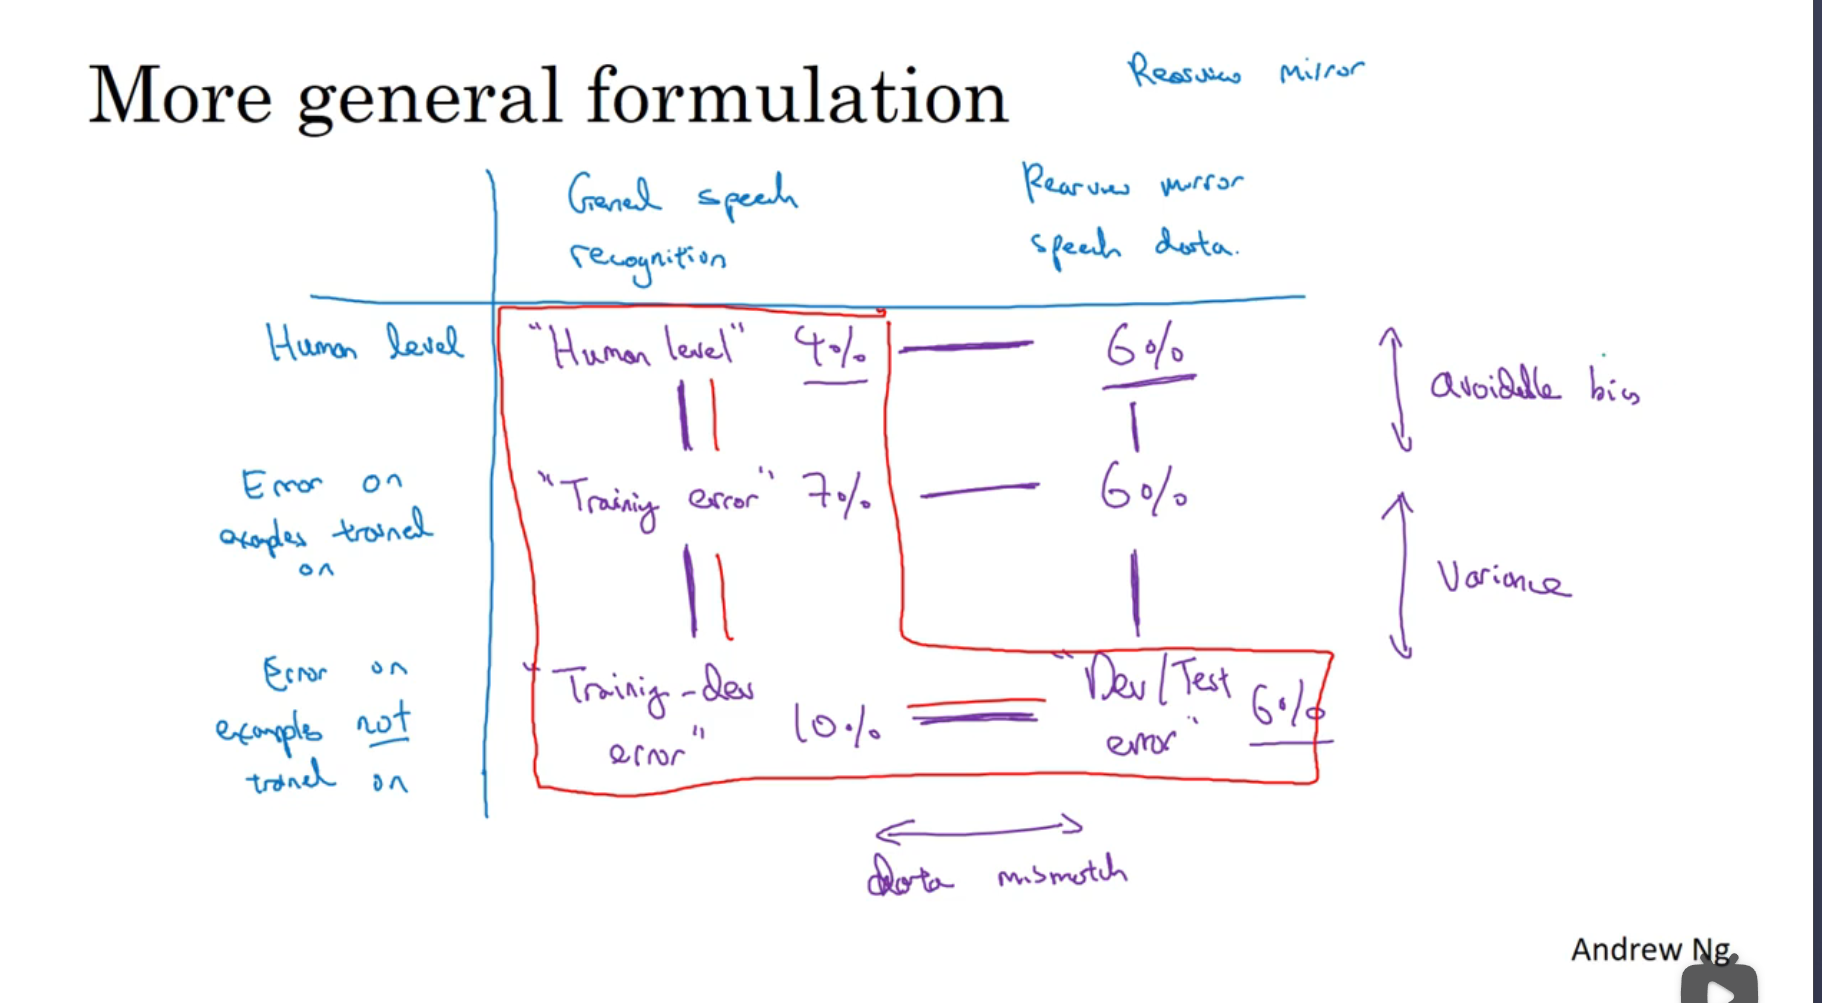 More general formulation
Rearview mirror
General speech recognition
Rearview mirror speech data.
Human level
"Human level" 4%
6%
avoidable bias
Error on examples trained on
"Training error" 7%
6%
Variance
Error on examples not trained on
"Training-dev error" 10%
"Dev/Test error" 6%
data mismatch
Andrew Ng